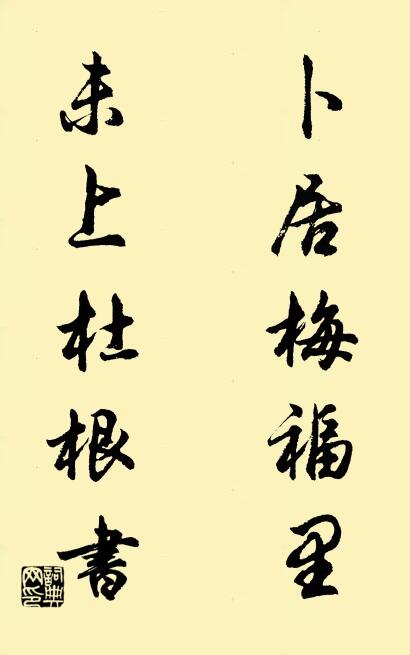 卜居梅福里
未上杜根書
詞典
网印